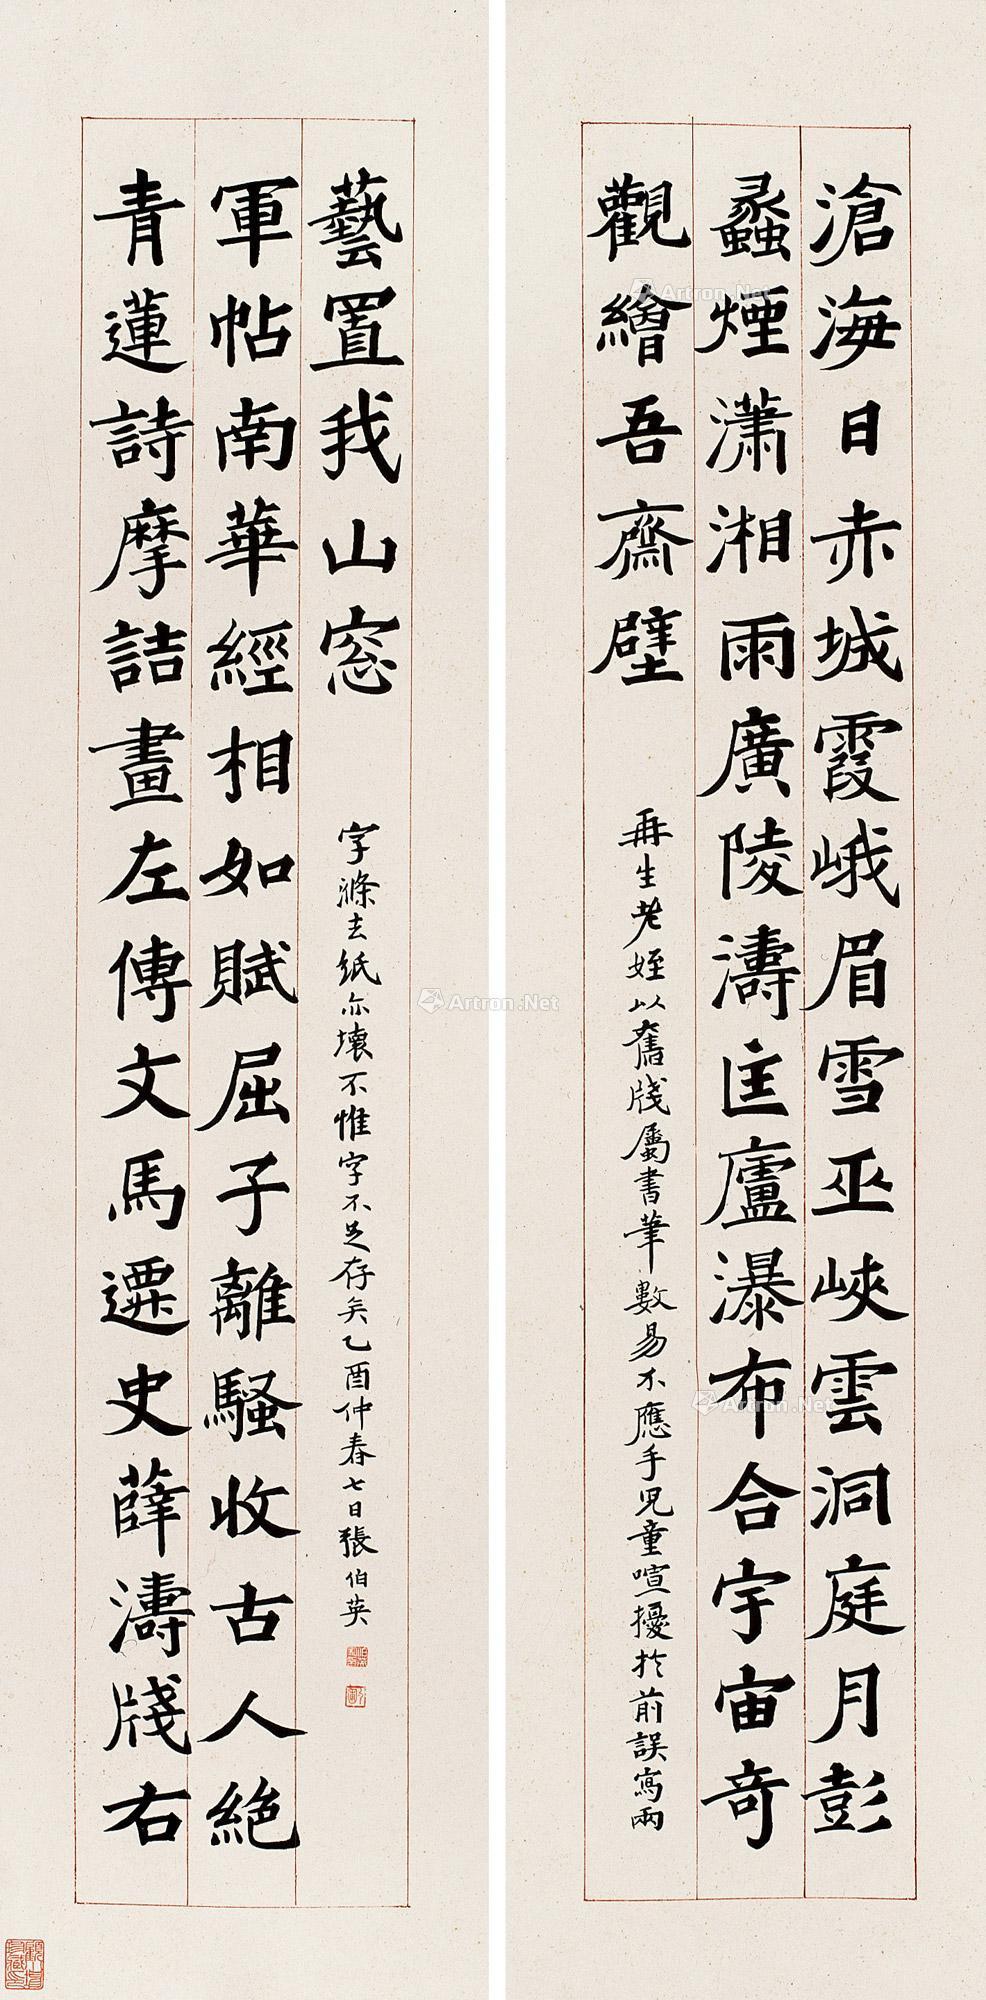 滄海日赤城霞峨眉雪巫峽雲洞庭月彭
蠡煙瀟湘雨廣陵濤匡廬瀑布合宇宙奇
觀繪吾齋壁
再生老姪以舊牋屬書筆數易不應手児童喧擾於前誤寫兩
青蓮詩摩詰畫左傳文馬遷史薛濤牋右
軍帖南華經相如賦屈子離騷收古人絕
藝置我山窓
字滌去紙亦壞不惟字不足存矣乙酉仲春七日張伯英
Artron.Net
Artron.Net
Artron.Net